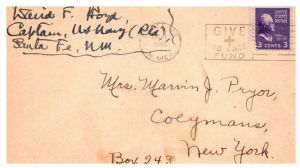 David F. Hoyd
Captain, US Navy (Ret)
Santa Fe, N.M.
GIVE
FUND
3 CENTS 3
Mrs. Marvin J. Pryor,
Coeymans,
New York.
Box 243